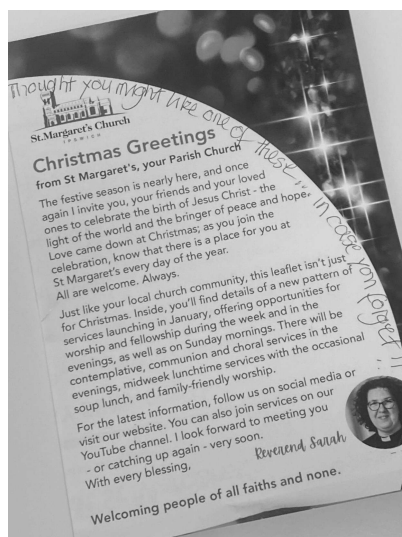 Thought you might like one of these... in case you forget!!
St.Margaret's Church
IPSWICH
Christmas Greetings
from St Margaret's, your Parish Church
The festive season is nearly here, and once
again I invite you, your friends and your loved
ones to celebrate the birth of Jesus Christ - the
light of the world and the bringer of peace and hope.
Love came down at Christmas; as you join the
celebration, know that there is a place for you at
St Margaret's every day of the year.
All are welcome. Always.
Just like your local church community, this leaflet isn't just
for Christmas. Inside, you'll find details of a new pattern of
services launching in January, offering opportunities for
worship and fellowship during the week and in the
evenings, as well as on Sunday mornings. There will be
contemplative, communion and choral services in the
evenings, midweek lunchtime services with the occasional
soup lunch, and family-friendly worship.
For the latest information, follow us on social media or
visit our website. You can also join services on our
YouTube channel. I look forward to meeting you
- or catching up again - very soon.
With every blessing,
Reverend Sarah
Welcoming people of all faiths and none.